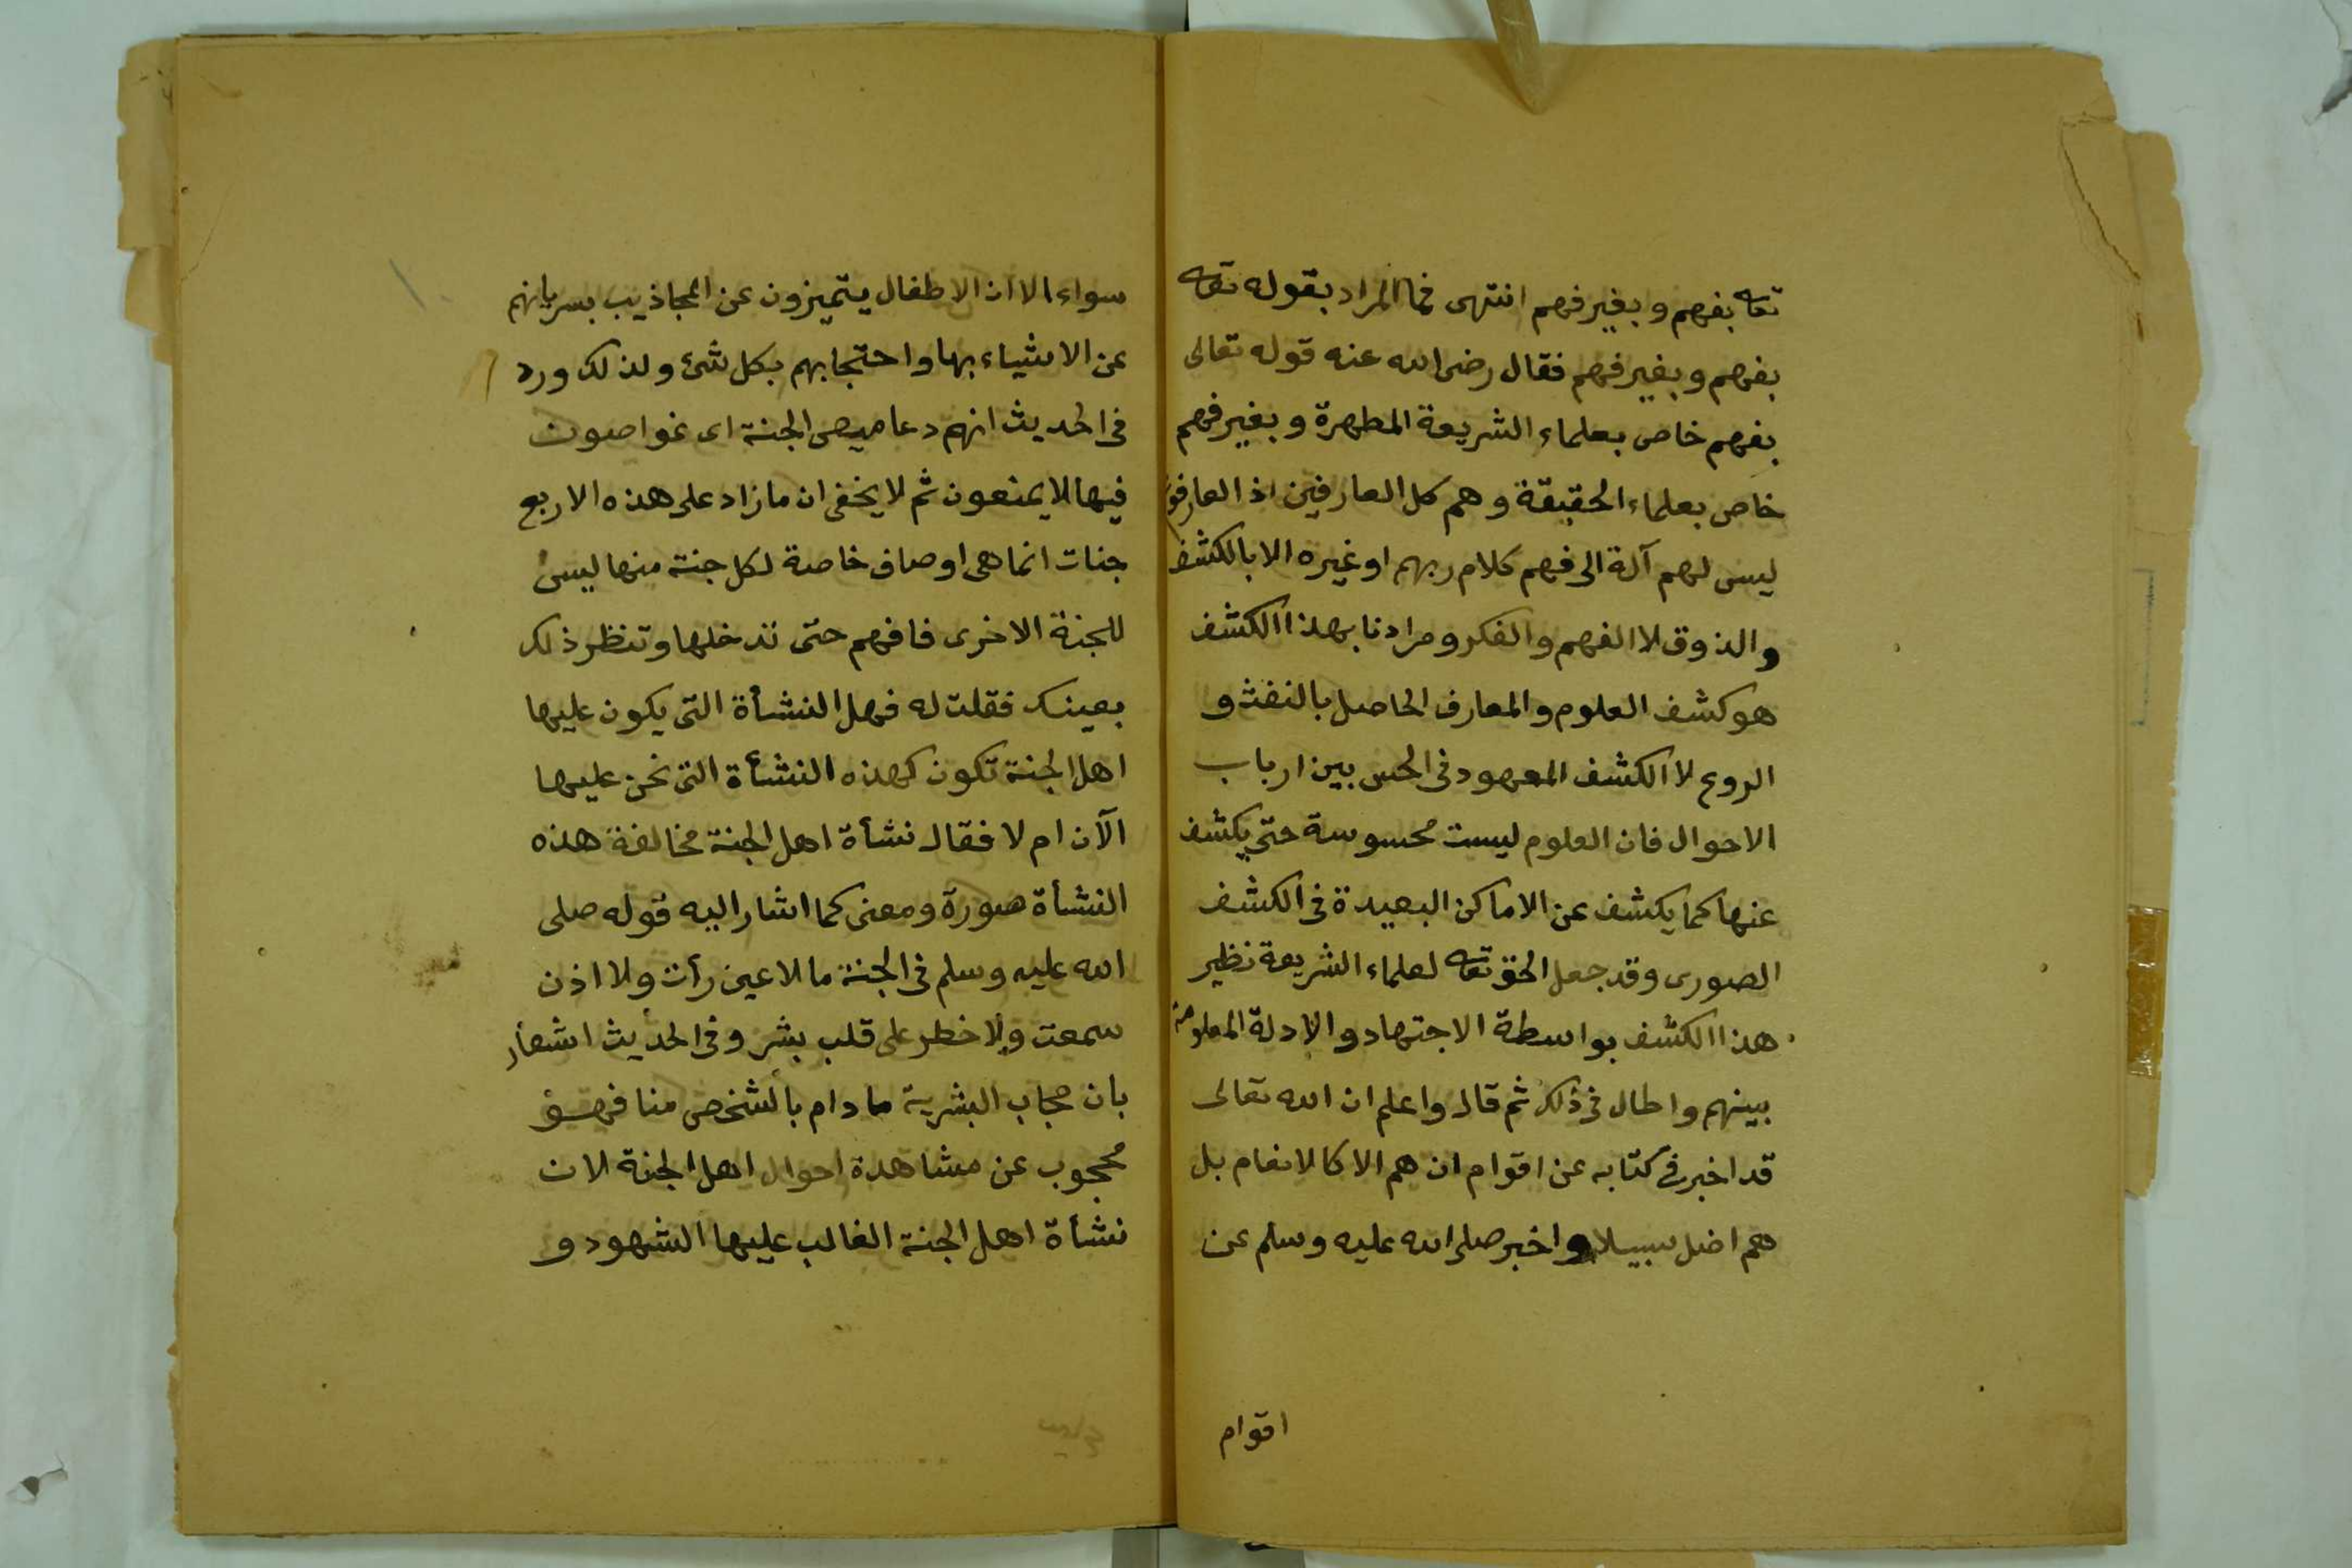 تعا بفهم وبغير فهم انتهى فما المراد بقوله تعا
بفهم وبغير فهم فقال رضى الله عنه قوله تعالى
بفهم خاص بعلماء الشريعة المطهرة وبغير فهم
خاص بعلماء الحقيقة وهم كل العارفين اذ العارفون
ليس لهم آلة الى فهم كلام ربهم او غيره الا بالكشف
والذوق لا الفهم والفكر ومرادنا بهذا الكشف
هو كشف العلوم والمعارف الحاصل بالنفث و
الروع لا الكشف المعهود فى الحس بين ارباب
الاحوال فان العلوم ليست محسوسة حتى يكشف
عنها كما يكشف عن الاماكن البعيدة فى الكشف
الصورى وقد جعل الحق تعا لعلماء الشريعة نظير
هذا الكشف بواسطة الاجتهاد والادلة المعلومة
بينهم واطال فى ذلك ثم قال واعلم ان الله تعالى
قد اخبر فى كتابه عن اقوام ان هم الا كالانعام بل
هم اضل سبيلا واخبر صلى الله عليه وسلم عن
اقوام
سواء الا ان الاطفال يتميزون عن المجاذيب بسريانهم
عن الاشياء بها واحتجابهم بكل شئ ولذلك ورد
فى الحديث انهم دعاميص الجنة اى غواصون
فيها لا يمنعون ثم لا يخفى ان ما زاد على هذه الاربع
جنات انما هى اوصاف خاصة لكل جنة منها ليس
للجنة الاخرى فافهم حتى تدخلها وتنظر ذلك
بعينك فقلت له فهل النشأة التى يكون عليها
اهل الجنة تكون كهذه النشأة التى نحن عليها
الآن ام لا فقال نشأة اهل الجنة مخالفة هذه
النشأة صورة ومعنى كما اشار اليه قوله صلى
الله عليه وسلم فى الجنة ما لا عين رأت ولا اذن
سمعت ولا خطر على قلب بشر وفى الحديث اشعار
بان حجاب البشرية ما دام بالشخص منا فهو
محجوب عن مشاهدة احوال اهل الجنة لان
نشأة اهل الجنة الغالب عليها الشهود و